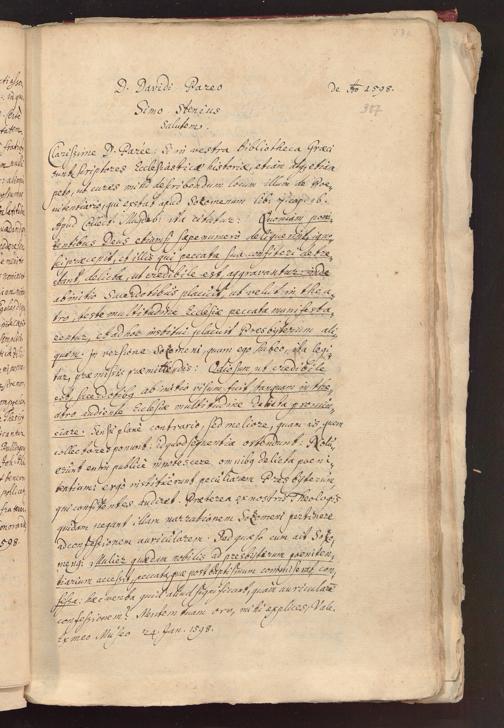 D. Davidi Pareo
de Ao 1598.
Simo Stenius
Salutem.
317
Clarissime D. Parêe. Si in vestra Bibliotheca Græci
sunt scriptores Ecclesiasticæ historiæ, etiam atq; etiam
peto, ut cures mihi describendum locum illum de Poe,
nitentiario, qui extat apud Sozomenum lib. 7. cap. 16.
Apud Collect. Magdeb. ita citatur: Quoniam poeni,
tentibus Deus etiamsi sæpenumero deliquerint, igno,
sci præcepit, et illis qui peccata sua confiteri detre,
ctant, delicta, ut credibile est, aggravantur: inde
ab initio Sacerdotibus placuit, ut velut in thea,
tro, teste multitudine Ecclesiæ peccata manifesta,
rentur, et ad hoc institui placuit Presbyterum ali,
quem: In versione Sozomeni, quam ego habeo, ita legi,
tur, præmissis præmittendis: Odiosum, ut credibile
est, sacerdotibq ab initio visum fuit, tanquam in the,
atro audiente Ecclesiæ multitudine delicta pronun,
ciare. Sensu plane contrario, sed meliore, quam is, quem
collectores ponunt: id quod sequentia ostendunt. Nolu,
erunt enim publice innotescere omnibq delicta poeni,
tentium: ergo instituerunt peculiarem Presbyterum,
qui confitentes audiret. Præterea ex nostris Theologis
quidam negant, illam narrationem Sozomeni pertinere
ad confessionem auricularem. Sed quæso cum ait Sozo,
menq: Mulier quædam nobilis ad presbyterum poeniten,
tiarium accessit, peccataque post baptismum commissa est con,
fessa: hæc verba quid aliud significant, quam auricularem
confessionem? Mentem tuam, oro, mihi explices, Vale.
Ex meo Museo 24. Jan. 1598.